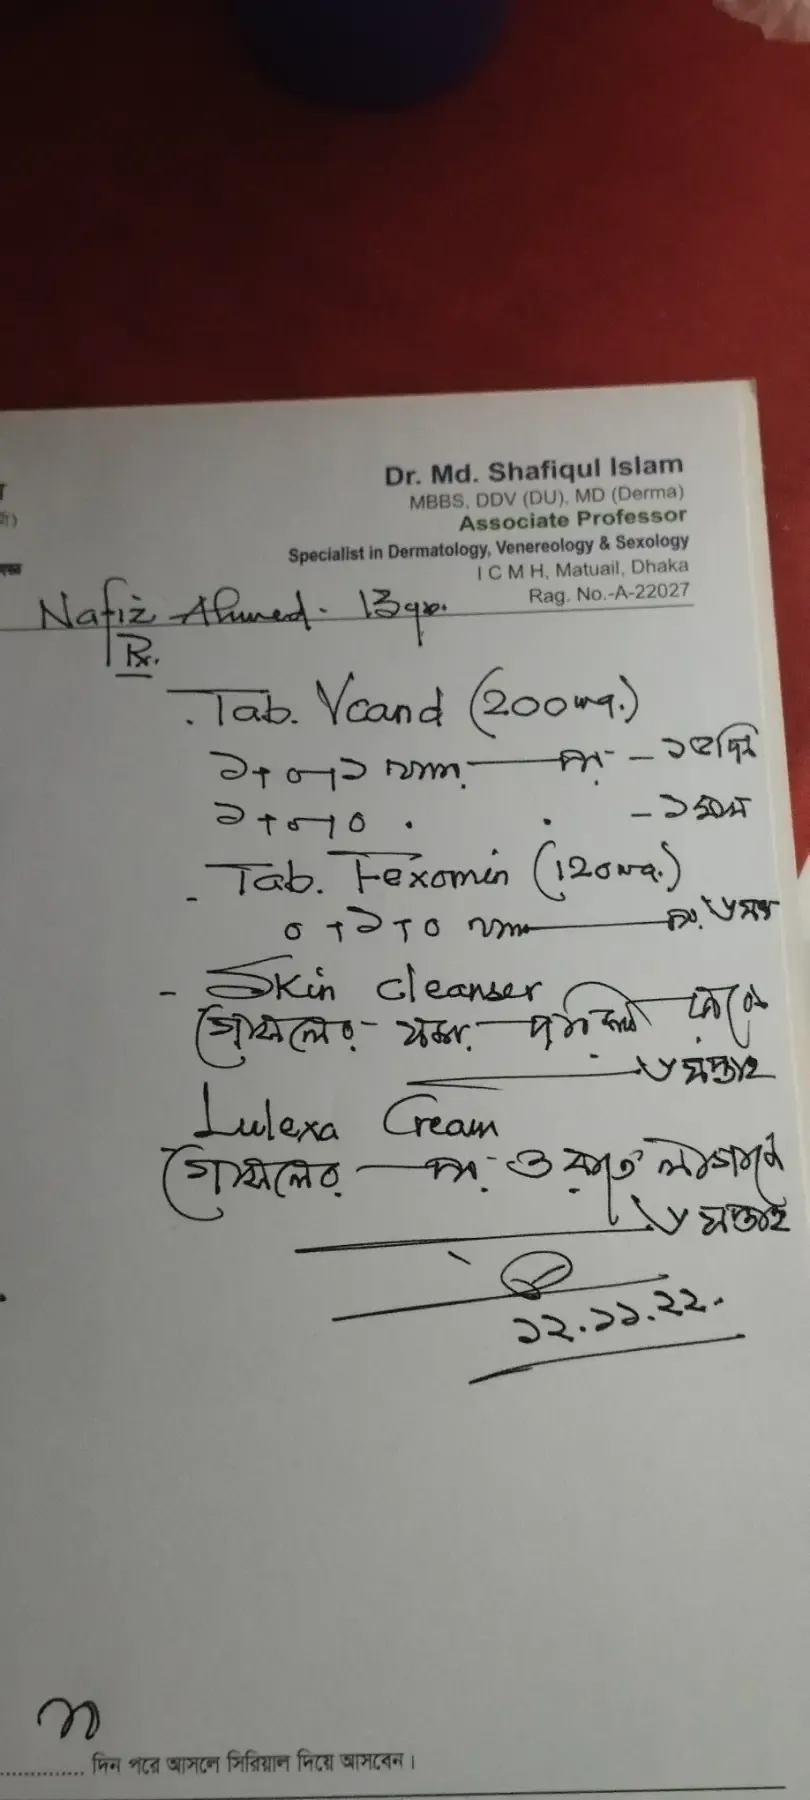 Dr. Md. Shafiqul Islam
MBBS, DDV (DU), MD (Derma)
Associate Professor
Specialist in Dermatology, Venereology & Sexology
I C M H, Matuail, Dhaka
Rag. No.-A-22027
Nafiz Ahmed - 13
Rx.
. Tab. Vcand (200mg.)
১+০+১
১+০+০ . . - ১ মাস
- Tab. Fexomin (120mg.)
০+১+০
- Skin cleanser
গোসলের সময়
৬ সপ্তাহ
Lulexa Cream
গোসলের পর ও রাতে লাগাবে
৬ সপ্তাহ
১২.১১.২২.
.............. দিন পরে আসলে সিরিয়াল দিয়ে আসবেন।